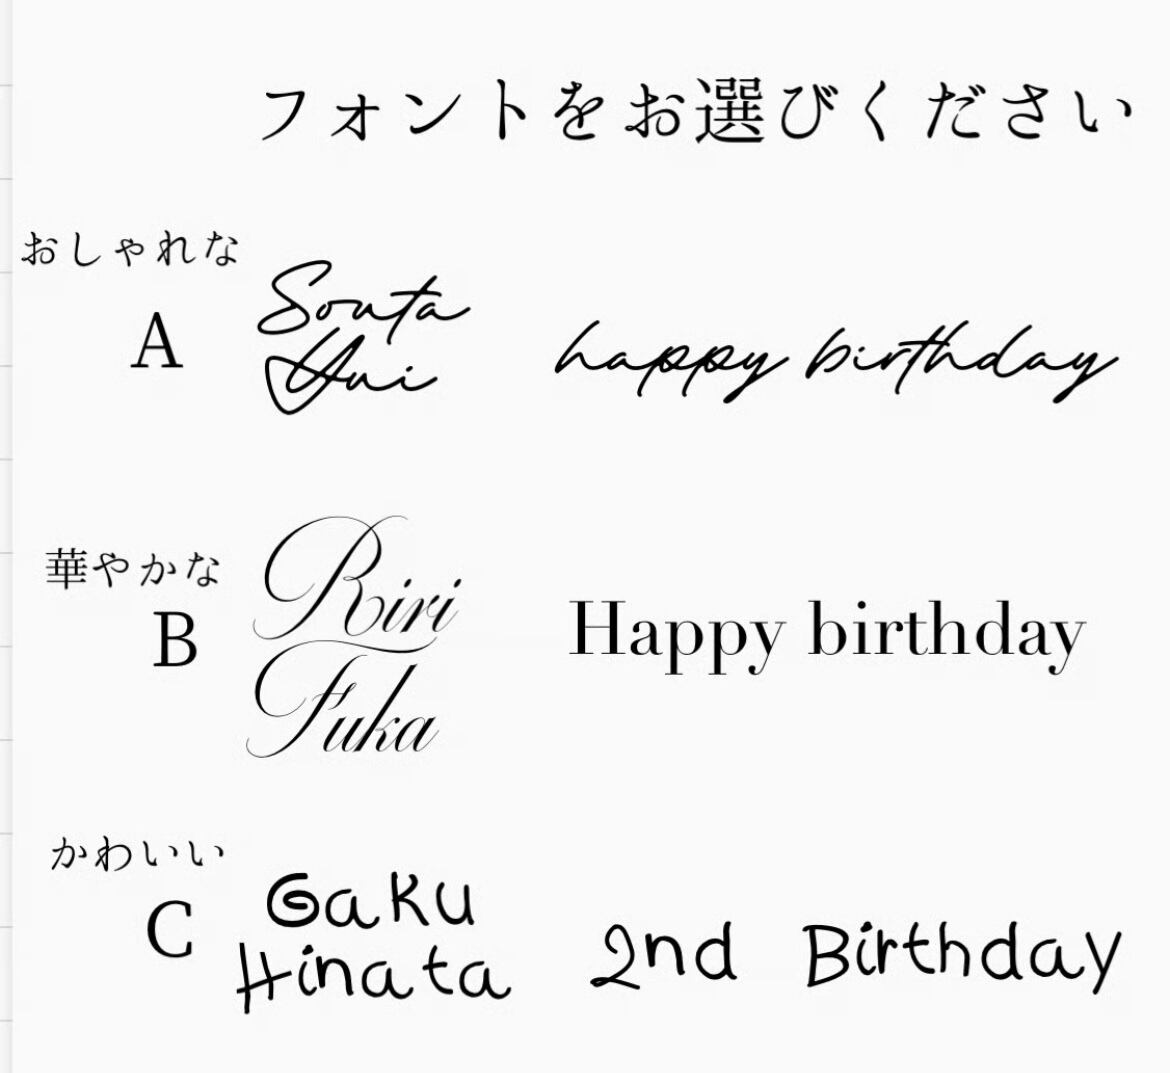 フォントをお選びください
おしゃれな
A
Souta
Yui
happy birthday
華やかな
B
Riri
Fuka
Happy birthday
かわいい
C
Gaku
Hinata
2nd Birthday